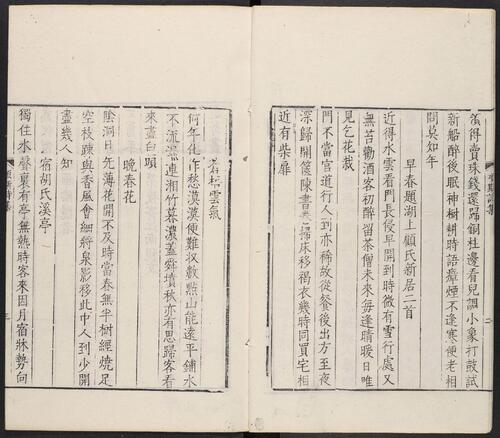 領得賣珠錢還歸銅柱邊看兒調小象打鼓試
新船醉後眠神樹耕時語瘴煙不逢寒便老相
問莫知年
早春題湖上顧氏新居二首
近得水雲看門長侵早開到時微有雪行處又
無苔勸酒客初醉留茶僧未來每逢晴暖日唯
見乞花栽
門不當官道行人到亦稀故從餐後出方至夜
深歸開篋陳書卷掃床移褐衣幾時同買宅相
近有柴扉
蒼梧雲氣
何年化作愁漠漠便難收數點山能遠平鋪水
不流濕連湘竹暮濃蓋舜墳秋亦有思歸客看
來盡白頭
晚春花
陰洞日光薄花開不及時當春無半樹經燒足
空枝疎與香風會細將泉影移此中人到少開
盡幾人知
宿胡氏溪亭
獨住水聲裏有亭無熱時客來因月宿牀勢向